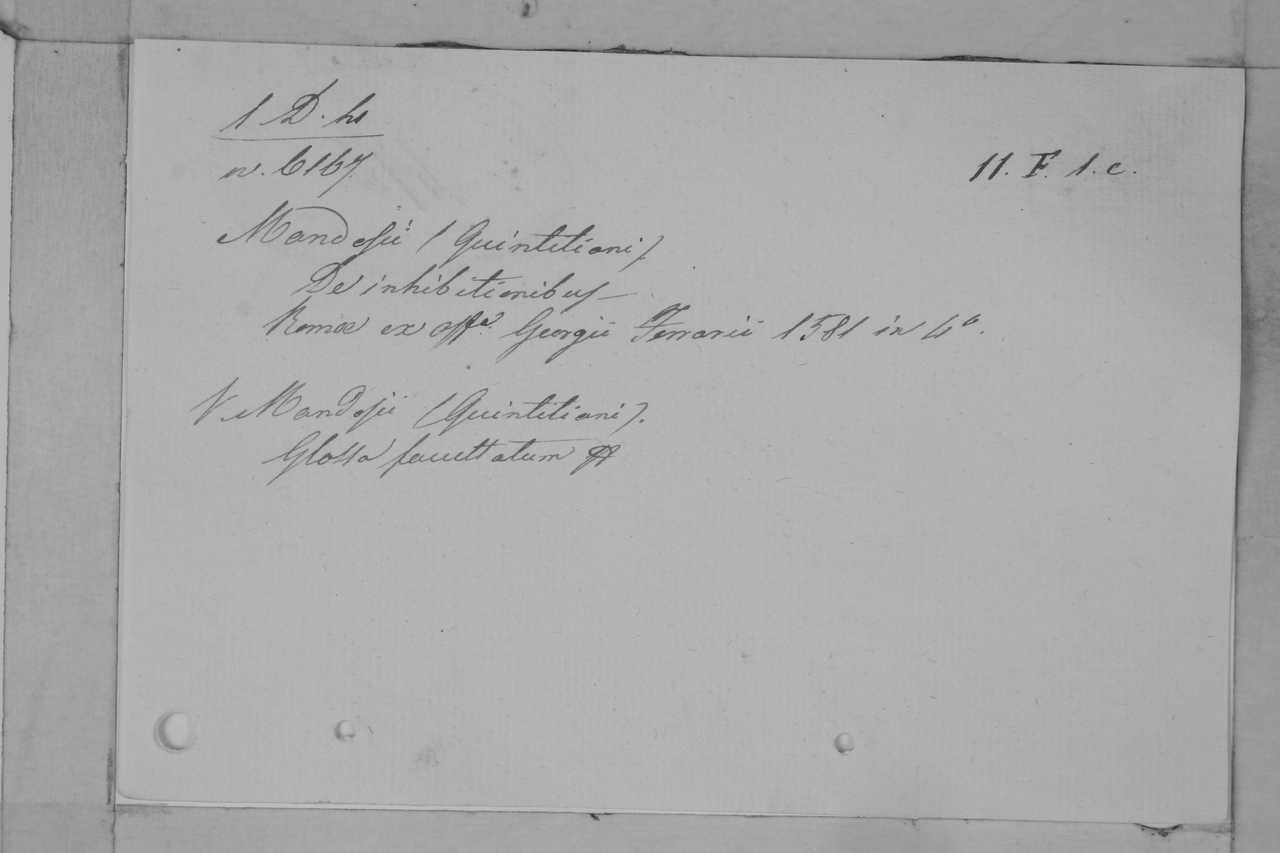 1 D. h
n. 6167
11. F. 1. c.
Mandosii (Quintiliani)
De inhibitionibus —
Romæ ex offa. Georgii Ferrarii 1581 in 4o.
V. Mandosii (Quintiliani).
Glossa facultatum